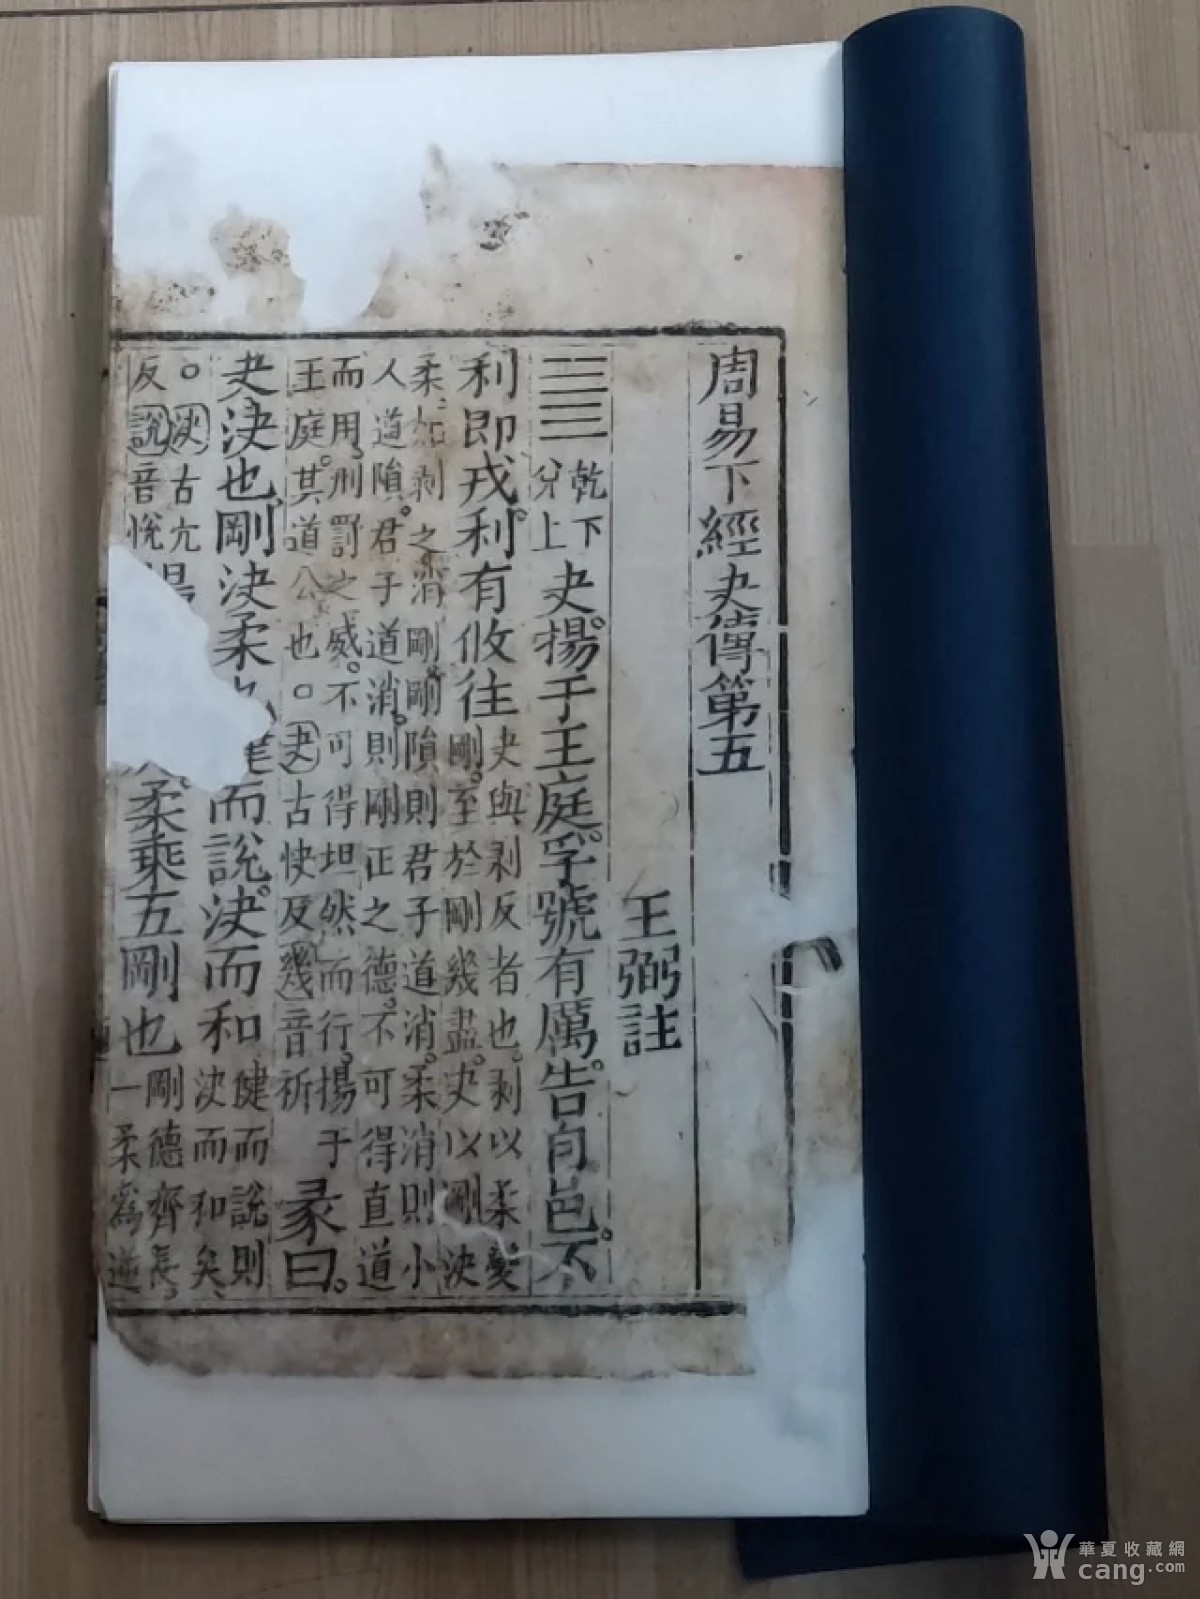 周易下經夬傳第五
王弼註
䷪乾下兌上夬。揚于王庭。孚號有厲。告自邑。不
利即戎。利有攸往夬與剥反者也。剥以柔變
剛。至於剛幾盡。夬以剛決
柔。如剥之消剛。剛隕則君子道消。柔消則小
人道隕。君子道消。則剛正之德。不可得直道
而用。刑罰之威。不可得坦然而行。揚于
王庭。其道公也○夬古快反幾音祈 彖曰。
夬決也。剛決柔也。健而說。決而和健而說則
決而和矣
○決古亢
反說音悅揚
柔乘五剛也剛德齊長。
一柔爲逆
華夏收藏網
cang.com